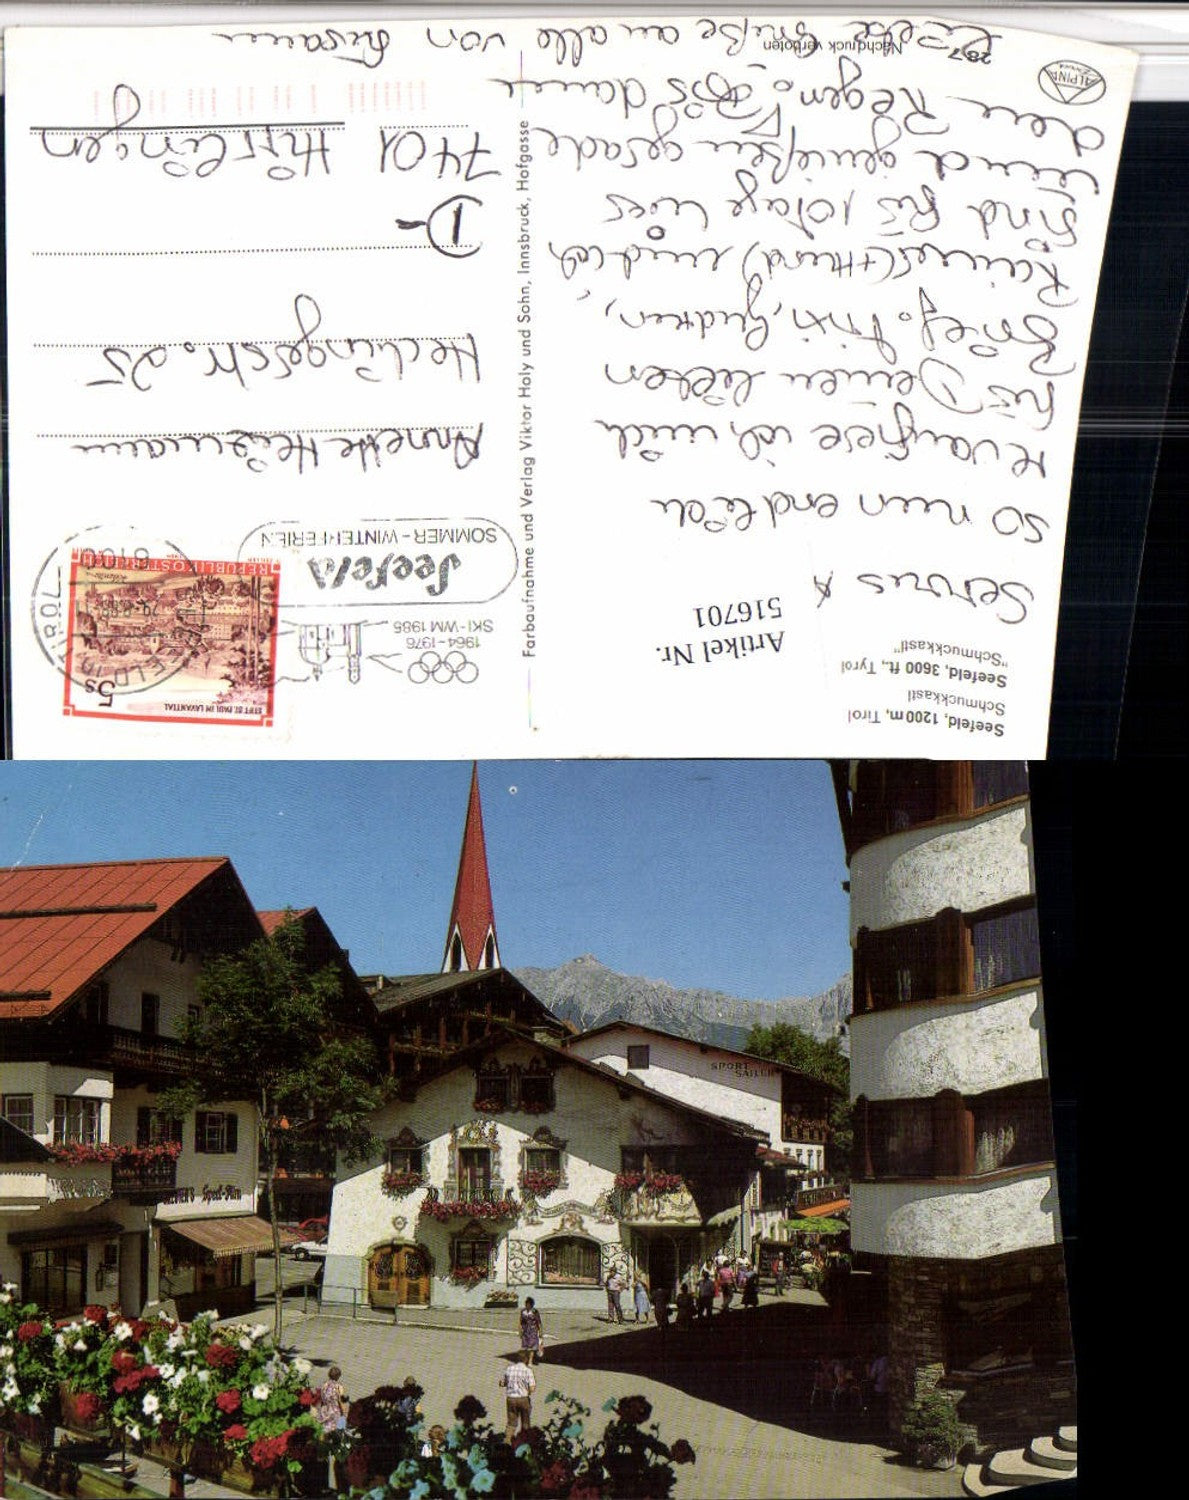 Seefeld, 1200 m, Tirol
Schmuckkastl
Seefeld, 3600 ft., Tyrol
"Schmuckkastl"
Artikel Nr.
516701
Servus A
so nun endlich
revangiere ich mich
für Deinen lieben
Brief. Trixi, Gudrun,
Rainer (+Hund) und ich
sind für 10 Tage
und genießen gerade
den Regen. Bis dann
Liebe Grüße an alle von Susann
287
Nachdruck verboten
ALPINE
Farbaufnahme und Verlag Viktor Holy und Sohn, Innsbruck, Hofgasse
1964-1976
SKI-WM 1985
Seefeld
SOMMER-WINTERFERIEN
STIFT ST. PAUL IM LAVANTTAL
5S
REPUBLIK OSTERREICH
6100
Annette
Hechingerstr. 25
D-
7401 Hirrlingen
SPORT
SAILER